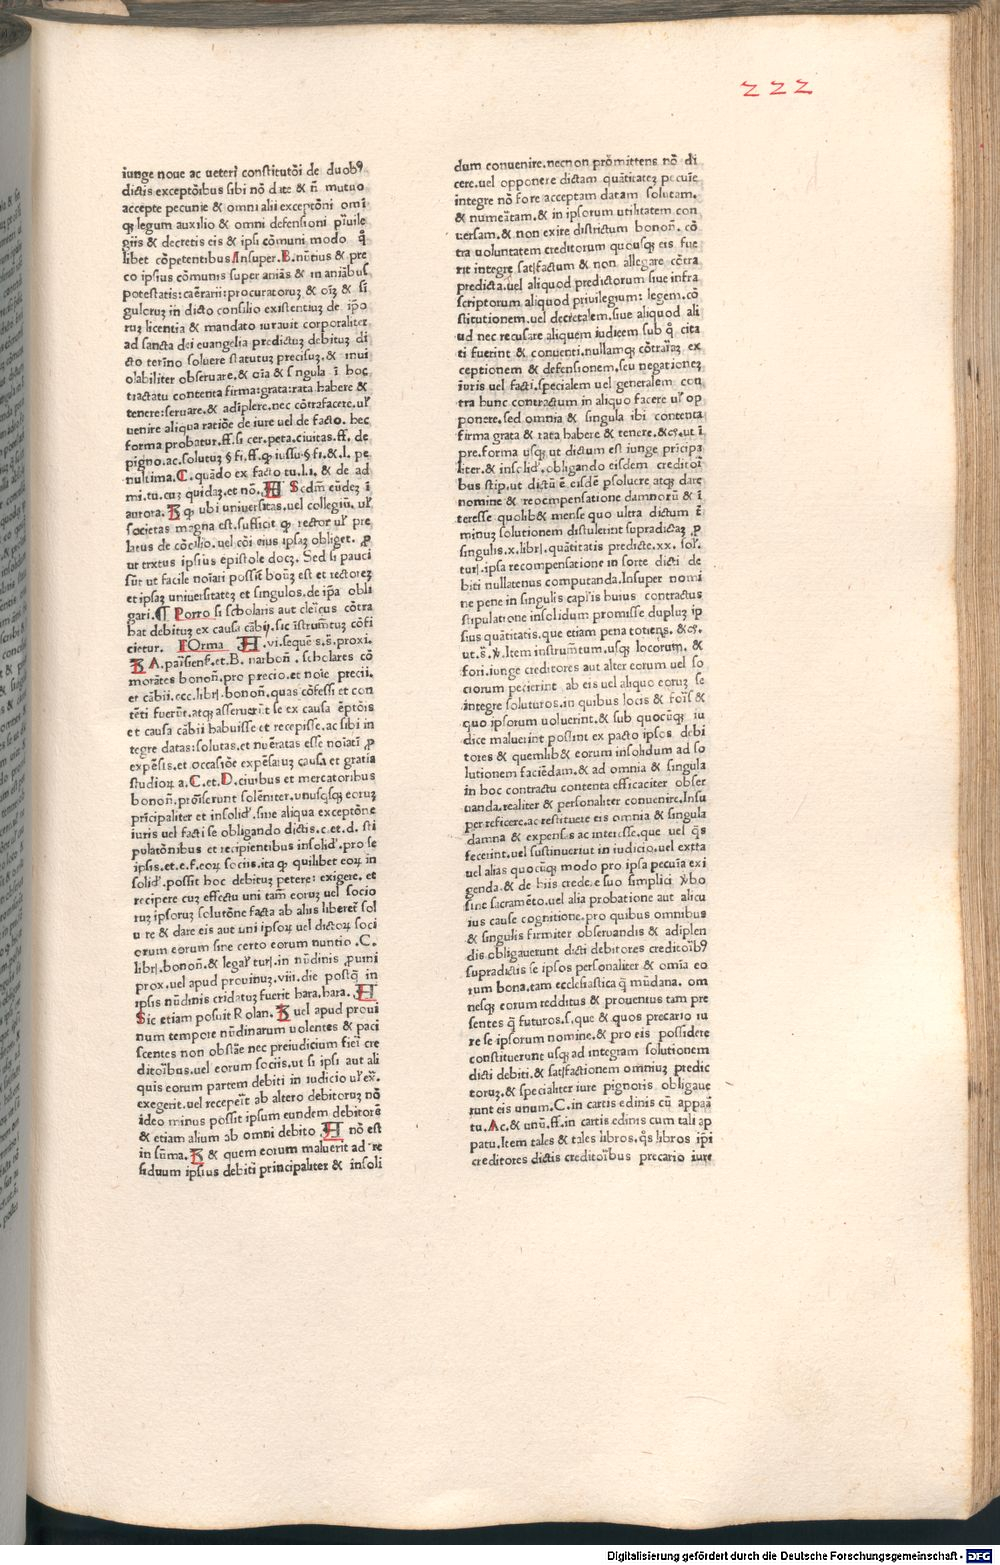 222
iunge noue ac ueteri constitutõi de duobꝰ
dictis exceptõibus sibi nõ date & ñ mutuo
accepte pecunie & omni alii exceptõni omĩ
qꝫ legum auxilio & omni defensioni pͥuile
giis & decretis eis & ipsi cõmuni modo q̃
libet cõpetentibus Insuper.B.nũtius & pre
co ipsius cõmunis super aniãs & in aniãbus
potestatis:caẽrarii:procuratoruꝫ & oĩꝫ & sĩ
guloruꝫ in dicto consilio existentiuꝫ de ip̃o
ruꝫ licentia & mandato iurauit corporaliter
ad sancta dei euangelia predictuꝫ debituꝫ di
cto ter̃ino soluere statutuꝫ precisuꝫ.& inui
olabiliter obseruare.& oĩa & singula ĩ hoc
tractatu contenta firma:grata:rata habere &
tenere:seruare.& adiplere.nec cõtrafacere.uł
uenire aliqua ratiõe de iure uel de facto. hec
forma probatur.ff.si cer.peta.ciuitas.ff. de
pigno.ac.solutuꝫ § fi.ff.qꝫ iussu.§ fi.& .l. pe
nultima.C.quãdo ex facto tu.l.i. & de ad
mi.tu.cuꝫ quidaꝫ.et nõ. A Scdm̃ eũdeꝫ ĩ
aurora. R qꝫ ubi uniuersitas.uel collegiũ. uł
societas magna est.sufficit qꝫ rector uł pre
latus de cõcilio.uel cõi eius ipsaꝫ obliget. ꝓ
ut textus ipsius epistole docꝫ. Sed si pauci
sũt ut facile noĩari possĩt bonũꝫ est et rectoreꝫ
et ipsaꝫ uniuersitateꝫ et singulos.de ip̃a obli
gari. ¶ Porro si scholaris aut cleĩcus cõtra
hat debituꝫ ex causa cãbij.sic ĩstrum̃tuꝫ cõfi
cietur. FOrma A .vi.sequẽ s.s̃.proxi.
R A.paĩsienſ.et.B. narboñ . scholares cõ
morãtes bonoñ.pro precio.et noĩe precii.
et cãbii.ccc.libꝝ.bonoñ.quas cõfessi et con
tẽti fuerũt.atqꝫ asseruerũt se ex causa ẽptõis
et causa cãbii habuisse et recepisse.ac sibi in
tegre datas:solutas.et nuẽratas esse noĩatĩ ꝓ
expẽsis.et occasiõe expẽsaruꝫ causa et gratia
studioꝝ a.C.et.D.ciuibus et mercatoribus
bonoñ.prõiserunt solẽniter.unusqͥsqꝫ eoruꝫ
prĩcipaliter et insolid̛.sine aliqua exceptõne
iuris uel facti se obligando dictis.c.et.d. sti
pulatõnibus et recipientibus insolid̛.pro se
ipsis.et.e.f.eoꝝ sociis.ita qꝫ quilibet eoꝝ in
solid̛.possit hoc debituꝫ petere: exigere. et
recipere cuꝫ effectu uni tam̃ eoruꝫ uel socio
ruꝫ ipsoruꝫ solutõne facta ab aliis liberet̃ sol
u re & dare eis aut uni ipsoꝝ uel dictoꝝ soci
orum eorum sine certo eorum nuntio .C.
libꝝ.bonoñ.& legał turꝝ.in nũdinis ꝓuini
prox.uel apud prouinuꝫ.viii.die postq̃ in
ipsis nũdinis cridatuꝫ fuerit hara.hara. A
Sic etiam posuit Rolan. R uel apud proui
num tempore nũdinarum uolentes & paci
scentes non obstãe nec preiudicium fieĩ cre
ditoĩbus.uel eorum sociis.ut si ipsi aut ali
quis eorum partem debiti in iudicio uł ex̃.
exegerit.uel recepeĩt ab altero debitoruꝫ nõ
ideo minus possit ipsum eundem debitorẽ
& etiam alium ab omni debito A nõ est
in sũma. R & quem eorum maluerit ad re
siduum ipsius debiti principaliter & insoli
dum conuenire.necnon prõmittens nõ di
cere.uel opponere dictam quãtitateꝫ pecuĩe
integre nõ fore acceptam datam solutam.
& numeãtam.& in ipsorum utilitatem con
uersam.& non exire districtum bonoñ. cõ
tra uoluntatem creditorum quousqꝫ eis fue
rit integre satisfactum & non allegare cõtra
predicta.uel aliquod predictorum siue infra
scriptorum aliquod priuilegium: legem.cõ
stitutionem.uel decretalem.siue aliquod ali
ud nec recusare aliquem iudicem sub q̃ cita
ti fuerint & conuenti.nullamqꝫ cõtraĩaꝫ ex
ceptionem & defensionem.seu negationeꝫ
iuris uel facti.specialem uel generalem con
tra hunc contractum in aliquo facere uł op
ponere.sed omnia & singula ibi contenta
firma grata & rata habere & tenere.&cꝫ.ut ĩ
pre.forma usqꝫ ut dictum est iunge prĩcipa
liter.& insolid̛.obligando eisdem creditoĩ
bus stip.ut dictũ ẽ eisdẽ psoluere atqꝫ dare
nomine & recompensatione damnorũ & ĩ
teresse quolibꝫ mense quo ultra dictum ĩ
minuꝫ solutionem distulerint supradictaꝫ ꝓ
singulis.x.libꝝ.quãtitatis predicte.xx. sol̛.
turꝝ.ipsa recompensatione in sorte dicti de
biti nullatenus computanda.Insuper nomi
ne pene in singulis caplis huius contractus
stipulatione insolidum promisse dupluꝫ ip
sius quãtitatis.que etiam pena totiẽs. &cꝫ.
ut.s̃.℣.Item instrum̃tum.usqꝫ locorum. &
fori.iunge creditores aut alter eorum uel so
ciorum pecierint ab eis uel aliquo eoruꝫ se
integre soluturos.in quibus locis & foĩs &
quo ipsorum uoluerint.& sub quocũqꝫ iu
dice maluerint possint ex pacto ipsos debi
tores & quemlibꝫ & eorum insolidum ad so
lutionem faciẽdam.& ad omnia & singula
in hoc contractu contenta efficaciter obser
uanda.realiter & personaliter conuenire.Insu
per reficere.ac restituere eis omnia & singula
damna & expensas ac interesse.que uel q̃s
fecerint.uel sustinuerint in iudicio.uel extra
uel alias quocũqꝫ modo pro ipsa pecuĩa exi
genda.& de hiis credere suo simplici ℣bo
sine sacramẽto.uel alia probatione aut alicu
ius cause cognitione.pro quibus omnibus
& singulis firmiter obseruandis & adiplen
dis obligauerunt dicti debitores creditoĩbꝰ
supradictis se ipsos personaliter & omĩa eo
rum bona.tam ecclesiastica q̃ mũdana. om
nesqꝫ eorum redditus & prouentus tam pre
sentes q̃ futuros.s.que & quos precario iu
re se ipsorum nomine.& pro eis possidere
constituerunt usqꝫ ad integram solutionem
dicti debiti.& satisfactionem omniuꝫ predic
toruꝫ.& specialiter iure pignoris obligaue
runt eis unum.C.in cartis edinis cũ appaã
tu.Ac.& unũ.ff.in cartis edinis cum tali ap
patu.Item tales & tales libros.q̃s libros ip̃i
creditores dictis creditoĩbus precario iure
Digitalisierung gefördert durch die Deutsche Forschungsgemeinschaft - DFG